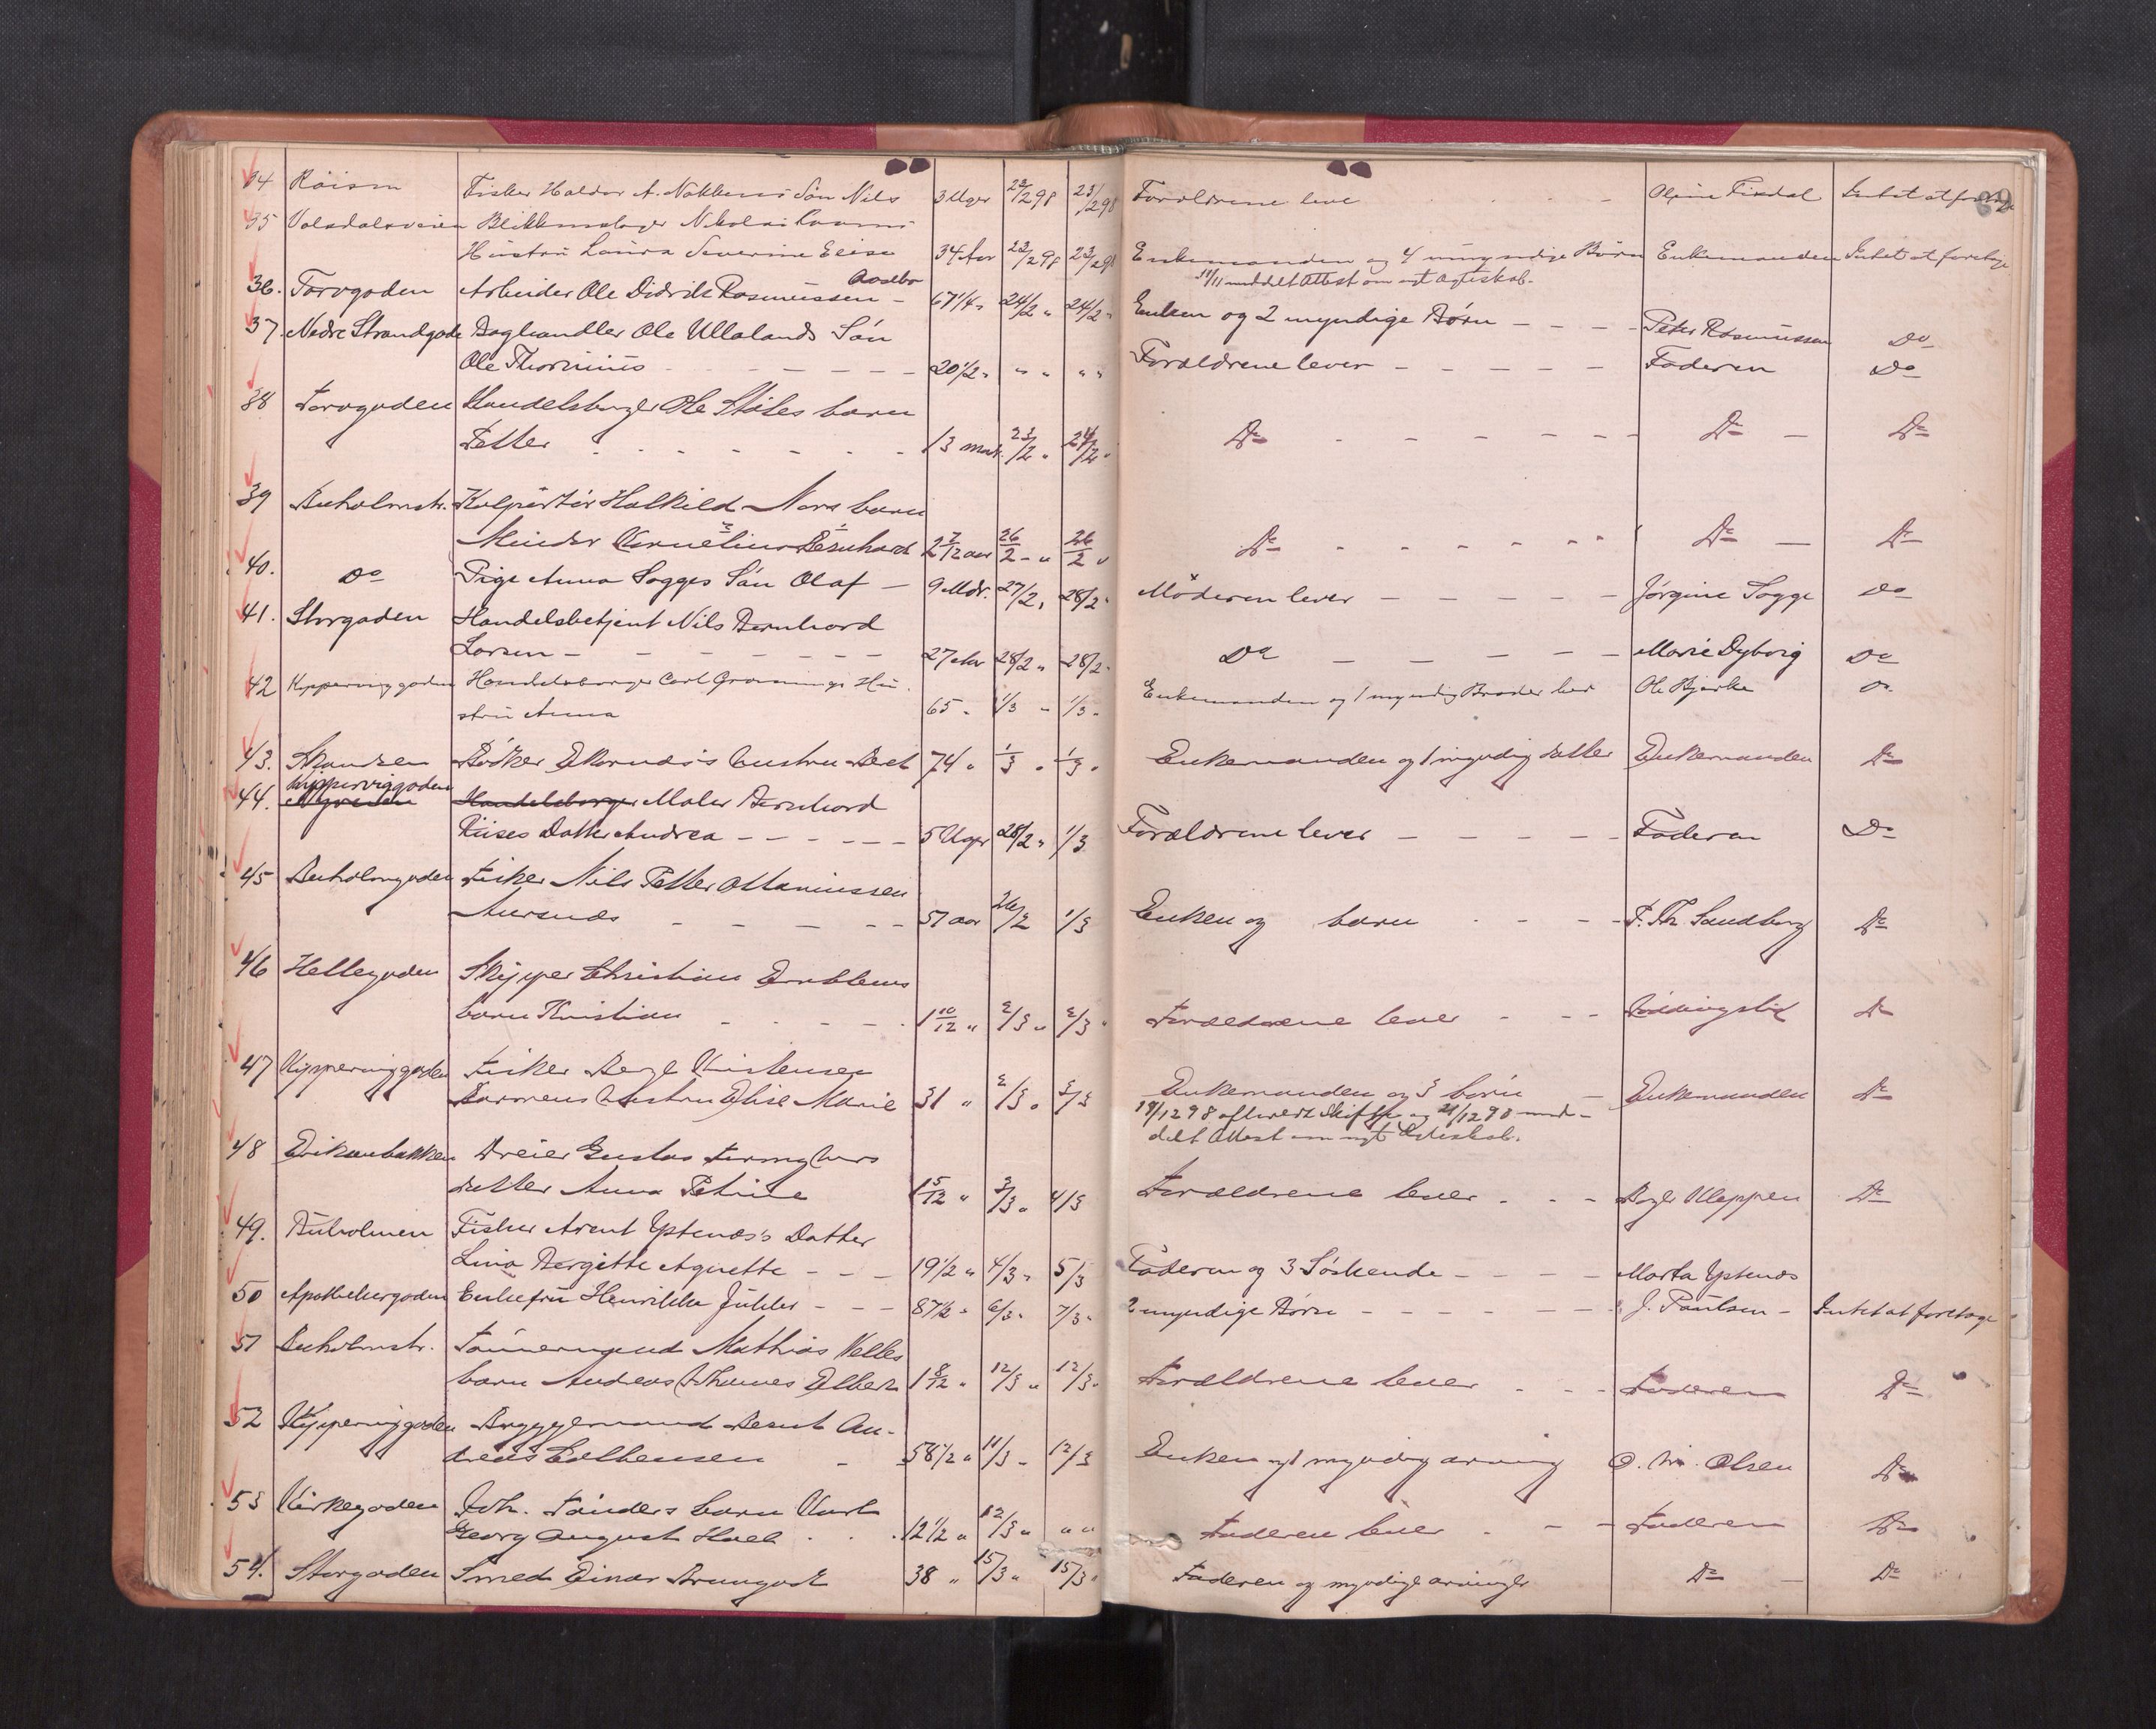 34 Röisen Fisker Haldor A. Nakkens Sön Nils 3 Uger 23/2 98 23/2 98 Forældrene leve Oline Fixdal Intet at foretage
35 Volsdalsveien Blikkenslager Nikolai
Hustru Laura Severine Elise 34 Aar 23/2 98 23/2 98 Enkemanden og 4 umyndige Børn Enkemanden Intet at foretage
11/11 meddelt Attest om nyt Ægteskab.
36. Torvgaden Arbeider Ole Didrik Rasmussen - 67 1/4 " 24/2 " 24/2 " Enken og 2 myndige Børn - - - - Peter Rasmussen Do
37. Nedre Strandgade Baghandler Ole Ullalands Sön
Ole Thorinius - - - - - 20 1/2 " " " " " Forældrene lever - - - - - Faderen Do
38 Torvgaden Handelsborger Ole Ståles barn
Petter - - - - - - 13 mndr. 23/2 " 24/2 " Do - - - - - - Do - Do
39 Buholmstr. Kolportör Halkild Nors barn
Minder Kornelius Bernhard 2 7/12 aar 26/2 - " 26/2 " Do - - - - - - Do - Do
40. Do Pige Anna Sogges Sön Olaf - 9 Mdr. 27/2 " 28/2 " Moderen lever - - - - - Jörgine Sogge Do
41. Storgaden Handelsbetjent Nils Bernhard
Larsen - - - - - - 27 Aar 28/2 " 28/2 " Do - - - - - Marie Dyborg Do
42 Kipperviggaden Handelsborger Carl Grønnings Hu-
stru Anna 65 " 1/3 " 1/3 " Enkemanden og 1 myndig Broder lever Ole Bjerke Do
43. Skandsen Bödker Ekornæs's hustru Beret 74 " 1/3 " 1/3 " Enkemanden og 1 myndig datter Enkemanden Do
Kipperviggaden
44. Handelsborger Maler Bernhard
Riises Datter Andrea - - - - - 5 Uger 28/2 " 1/3 Forældrene lever - - - - - Faderen Do
45 Buholmgaden Fisker Nils Petter Ottaniussen
Aursnes - - - - - 51 aar 26/2 1/3 Enken og børn - - - P. Th. Sandborg Do
46 Hellegaden Skipper Christian Emblems
barn Kristian - - - - 1 10/12 " 2/3 " 2/3 " Forældrene lever - - - Do
47 Kipperviggaden Fisker Berge Kristensen
Hustru Elise Marie 31 " 2/3 " 3/3 Enkemanden og 3 børn - Enkemanden Do
19/12 98 afhvert Skifte og 21/12 98 med-
delt Attest om nyt Ægteskab.
48 Erikenbakken Dreier Gustav
datter Anna Petrine 1 5/12 " 3/3 " 4/3 Forældrene lever - - - Berge Kleppen Do
49. Buholmen Fisker Arent Ystenes's Datter
Lina Bergitte Agnette - - - 19 1/2 " 4/3 " 5/3 Faderen og 3 Søskende - - - - Marta Ystenes
50 Apothekergaden Enkefru Henrikke Juhler - - - 87 1/2 " 6/3 " 7/3 " 2 myndige Börn - - - - - - J. Paulsen - Intet at foretage
51 Buholmstr. Tømmermand Mathias Velles
barn Andreas Johannes Albert 1 8/12 " 12/3 " 12/3 " Forældrene lever - - - Faderen Do
52 Kipperviggaden Bryggemand Bernt An-
dreas - 58 1/2 " 11/3 - 12/3 Enken og 1 myndig arving O. M. Olsen Do
53 Kirkegaden Joh. Tönders barn Karl
Georg August 12 1/2 " 12/3 " " " Faderen lever - - - Faderen Do
54. Storgaden Smed Einar Brungodt 38 " 15/3 " 15/3 " Faderen og myndige arvinger Do - Do